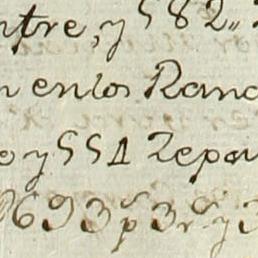 ntre, y 582„
n en los Ranc
o y 551 Repar
693 p 3 r y 3